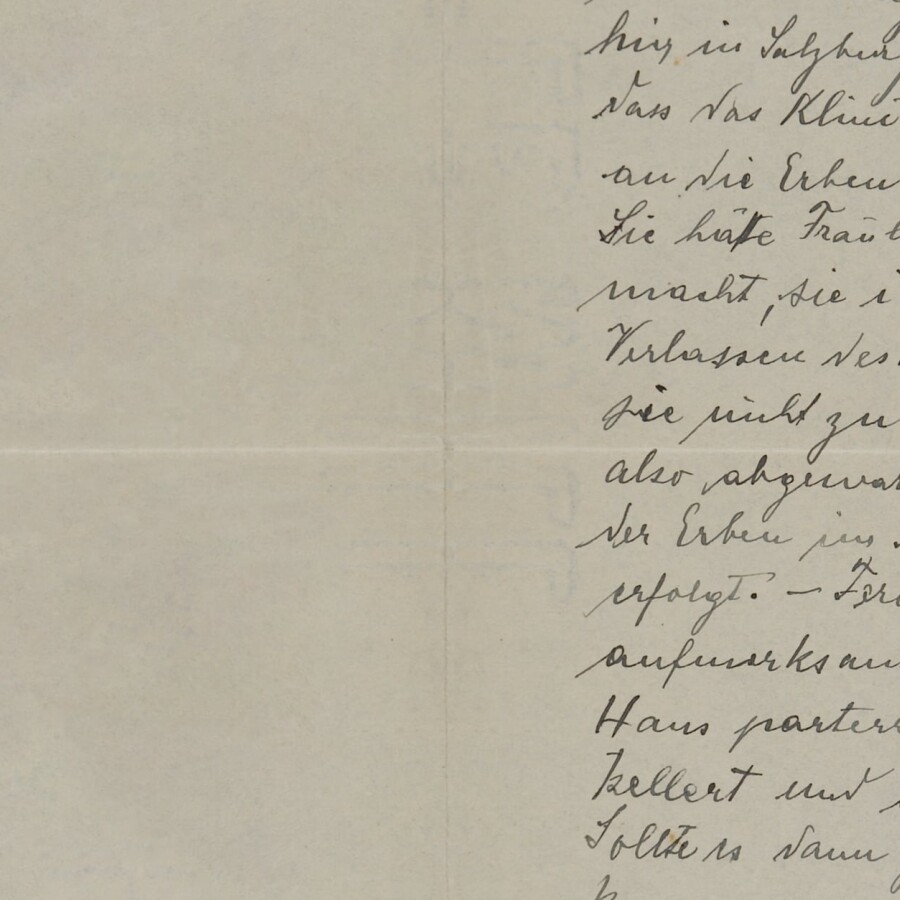 hin in Salzbur
dass das Klini
an die Erben
Sie hätte Fräul
macht, sie i
Verlassen des
sie nicht zu
also abgewar
der Erben im
erfolgt. — Fer
aufmerksam
Haus parterr
kellert und
Sollte es dann